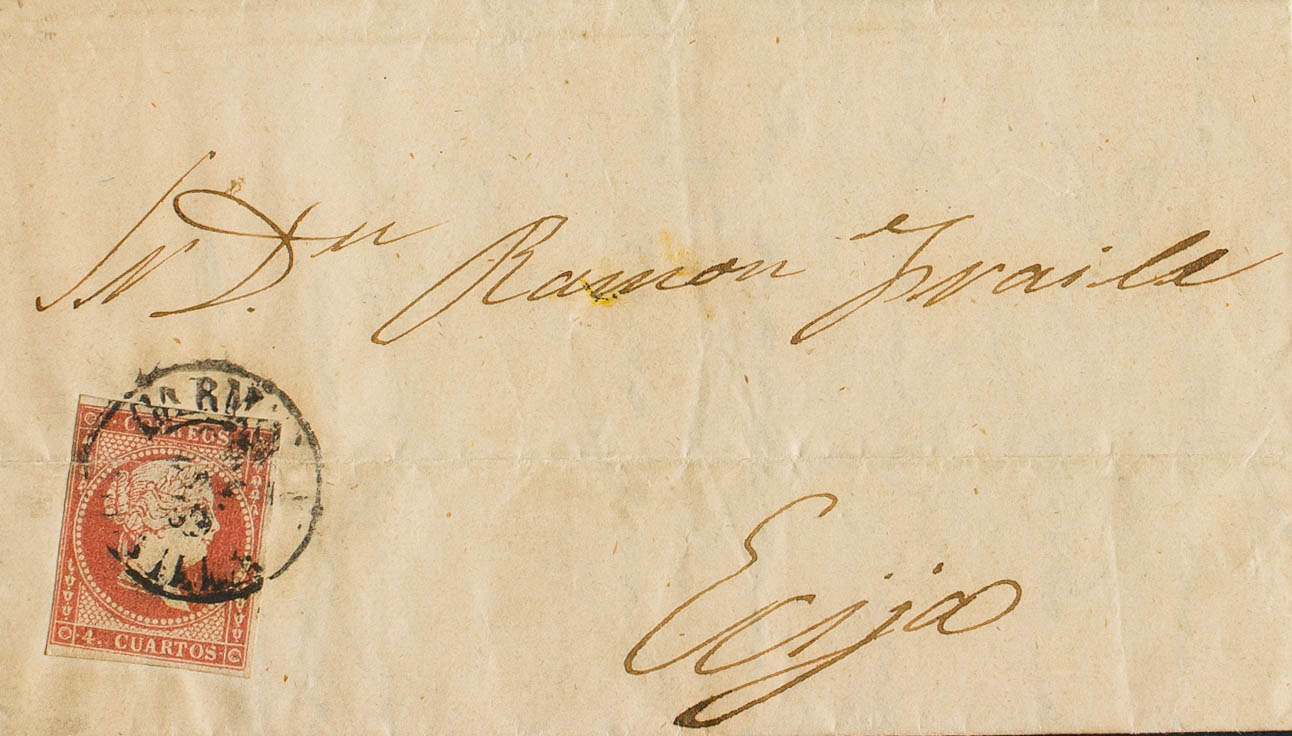 Sr Dn Ramon Fraile
Ecija
CARM
CORREOS
4. CUARTOS